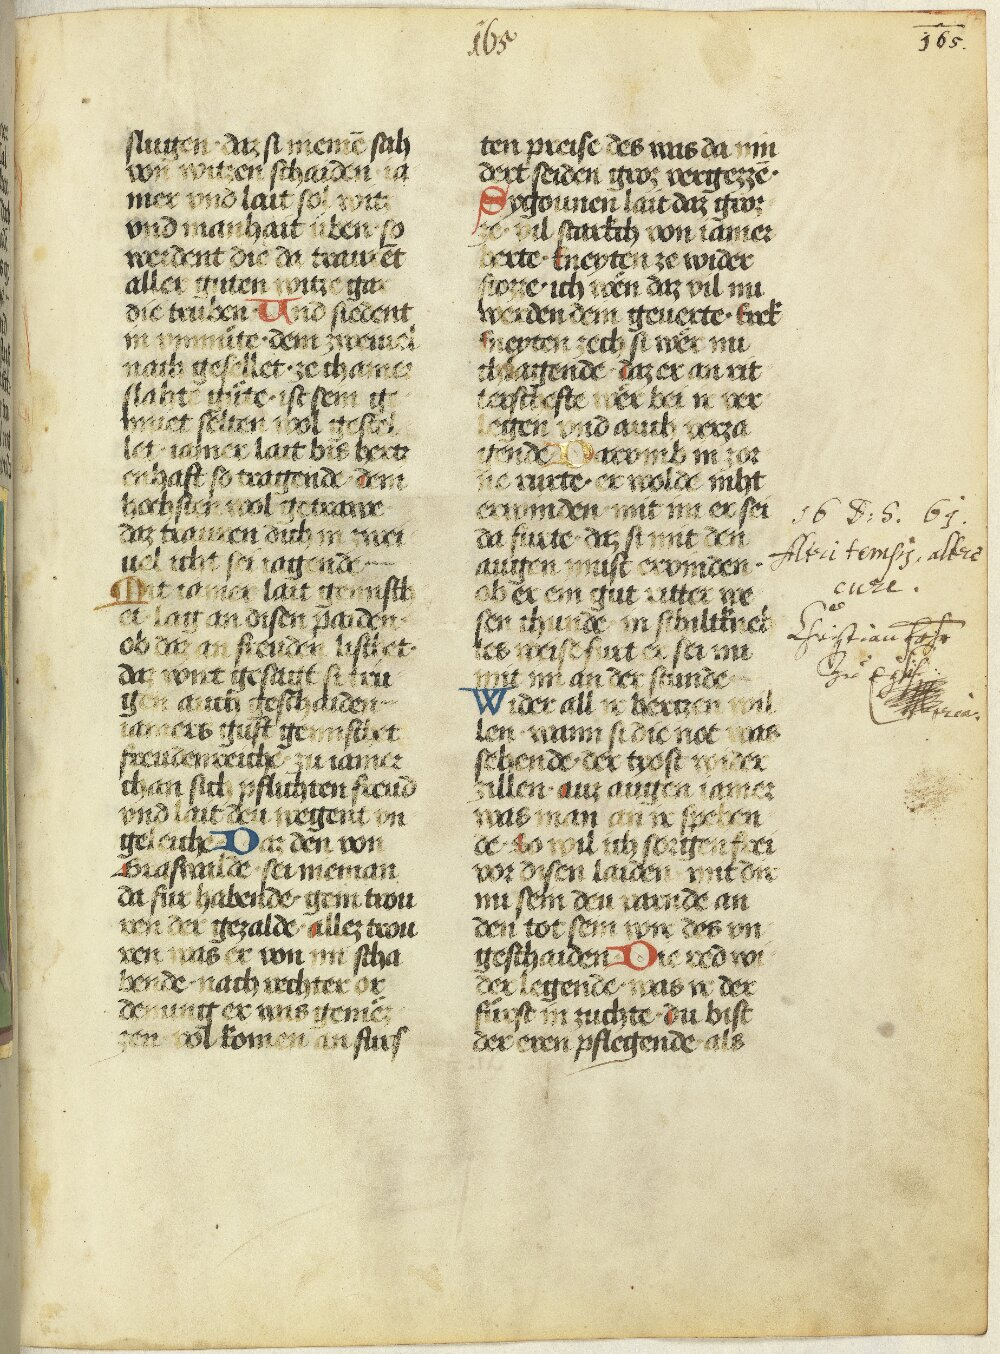 165
165.
slugen · daz si niemē sich
von witzen schaiden · ia
mer vnd lait sol witz
vnd manhait uben · so
werdent die da traurēt
aller guten witze gar
die truben · Und siedent
in vnmůte · dem zweiuel
nach gesellet · ze chainer
slahte gůte · ist sein ge
můet selten wol gestel
let · iamer lait bis hertz
enhaft so tragende · dem
hochsten wol getrawe
daz trauren dich in zwei
uel icht sei iagende
Mit iamer lait gemisch
et · lag an disen paiden ·
ob daz an freuden lischet ·
daz wirt gesaut si tru
gen auch geschaiden
iamers gust gemischet
freudenreiche · zu iamer
chan sich pflichten freud
vnd lait den wegent vn
geleiche Dar den von
Graswalde · sei nieman
da fur habende · gein trou
ren der gezalde · allez trou
ren was er von im scha
bende · nach rechter or
denung er was gemez
zen · vol komen an furs
ten preise des was da nin
dert seiden groz vergezzē ·
Sygounen lait daz groz
ze · vil starkch von iamer
herte · kneyten ze wider
stozze · ich wen daz vil nu
werden dem geuerte · Erek
kneyten zech si wer nu
chlagende · daz er an rit
terschefte wer bei ir ver
legen vnd auch verza
gende Darvmb in zor
ne rurte · er wolde niht
erwinden · mit im er sei
da furte · daz si mit den
augen must ervinden ·
ob er ein gut ritter we
sen chunde · in schiltkneh
tes weise furt er sei nu
mit im an der stunde
Wider all ir hertzen wil
len · wann si die not was
sehende · der trost wider
zillen · auz augen iamer
was man an ir spehen
de · so wil ich sorgen frei
vor disen laiden mit dir
nu sein den varnde an
den tot sein wir des vn
geschaiden · Die red wi
der legende · was ir der
furst in zuchte · du bist
der eren pflegende · als
16 D. S. 61.
Alteri tempis, altera
cura.
Christian